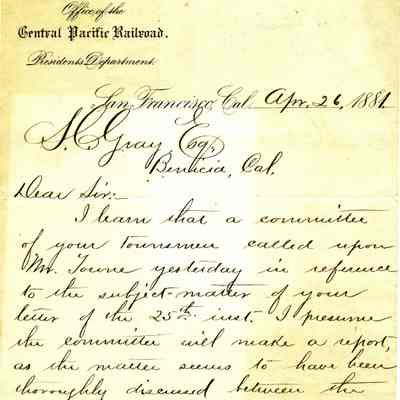 Office of the
Central Pacific Railroad.
Presidents Department.
San Francisco, Cal. Apr. 26, 1881
S. C. Gray Esq,
Benicia, Cal.
Dear Sir:-
I learn that a committee
of your townsmen called upon
Mr. Towne yesterday in reference
to the subject-matter of your
letter of the 25th inst. I presume
the committee will make a report,
as the matter seems to have been
thoroughly discussed between the